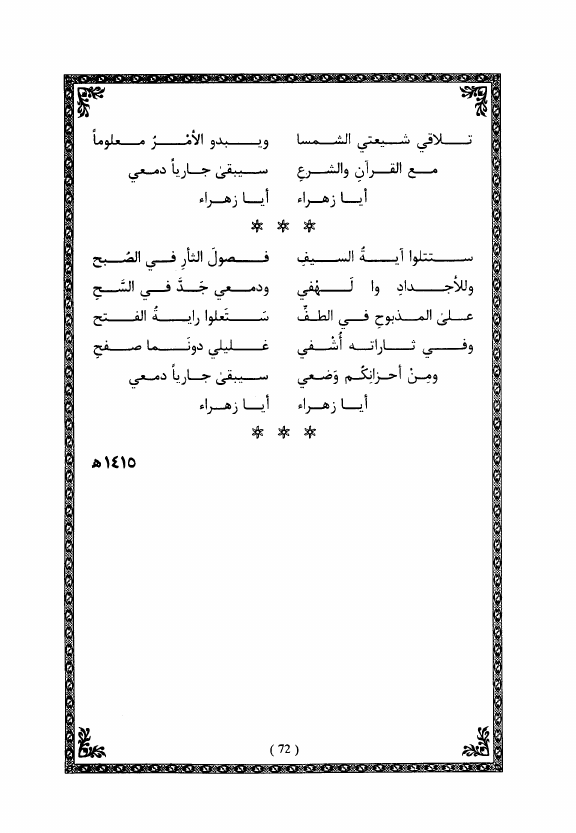 تـــلاقي شـــيعتي الشـــمسا ويـــبدو الأمْـــرُ مـــعلوماً
مـــع القـــرآنِ والشـــرعِ ســـيبقىٰ جـــارياً دمـــعي
أيـــا زهـــراء أيـــا زهـــراء
* * *
ســـتتلوا آيـــةُ الســـيفِ فـــصولَ الثأرِ فـــي الصّبح
وللأجـــدادِ وا لَـــهْفي ودمـــعي جَـــدَّ فـــي السَّـــحِ
عـــلىٰ المـــذبوحِ فـــي الطـــفِّ سَـــتَعلوا رايـــةُ الفـــتح
وفـــي ثـــاراتـــه أُشْـــفي غـــليلي دونَـــما صـــفحِ
ومِـــنْ أحـــزانِكُـــم وَضـــعي ســـيبقىٰ جـــارياً دمـــعي
أيـــا زهـــراء أيـــا زهـــراء
* * *
١٤١٥ﻫ
( 72 )